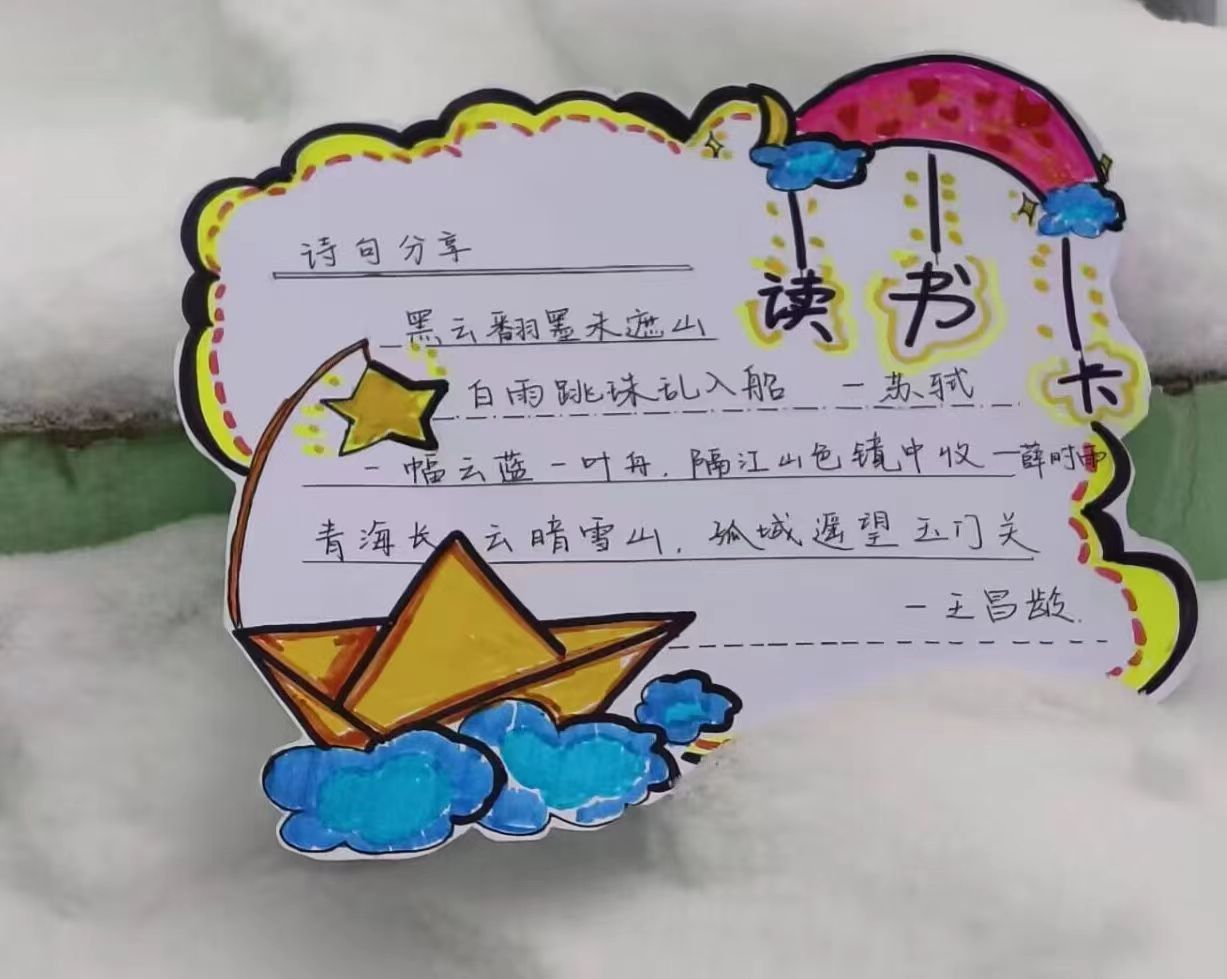 读书卡
诗句分享
黑云翻墨未遮山
白雨跳珠乱入船 — 苏轼
一幅云蓝一叶舟，隔江山色镜中收 — 薛时雨
青海长云暗雪山，孤城遥望玉门关
— 王昌龄.